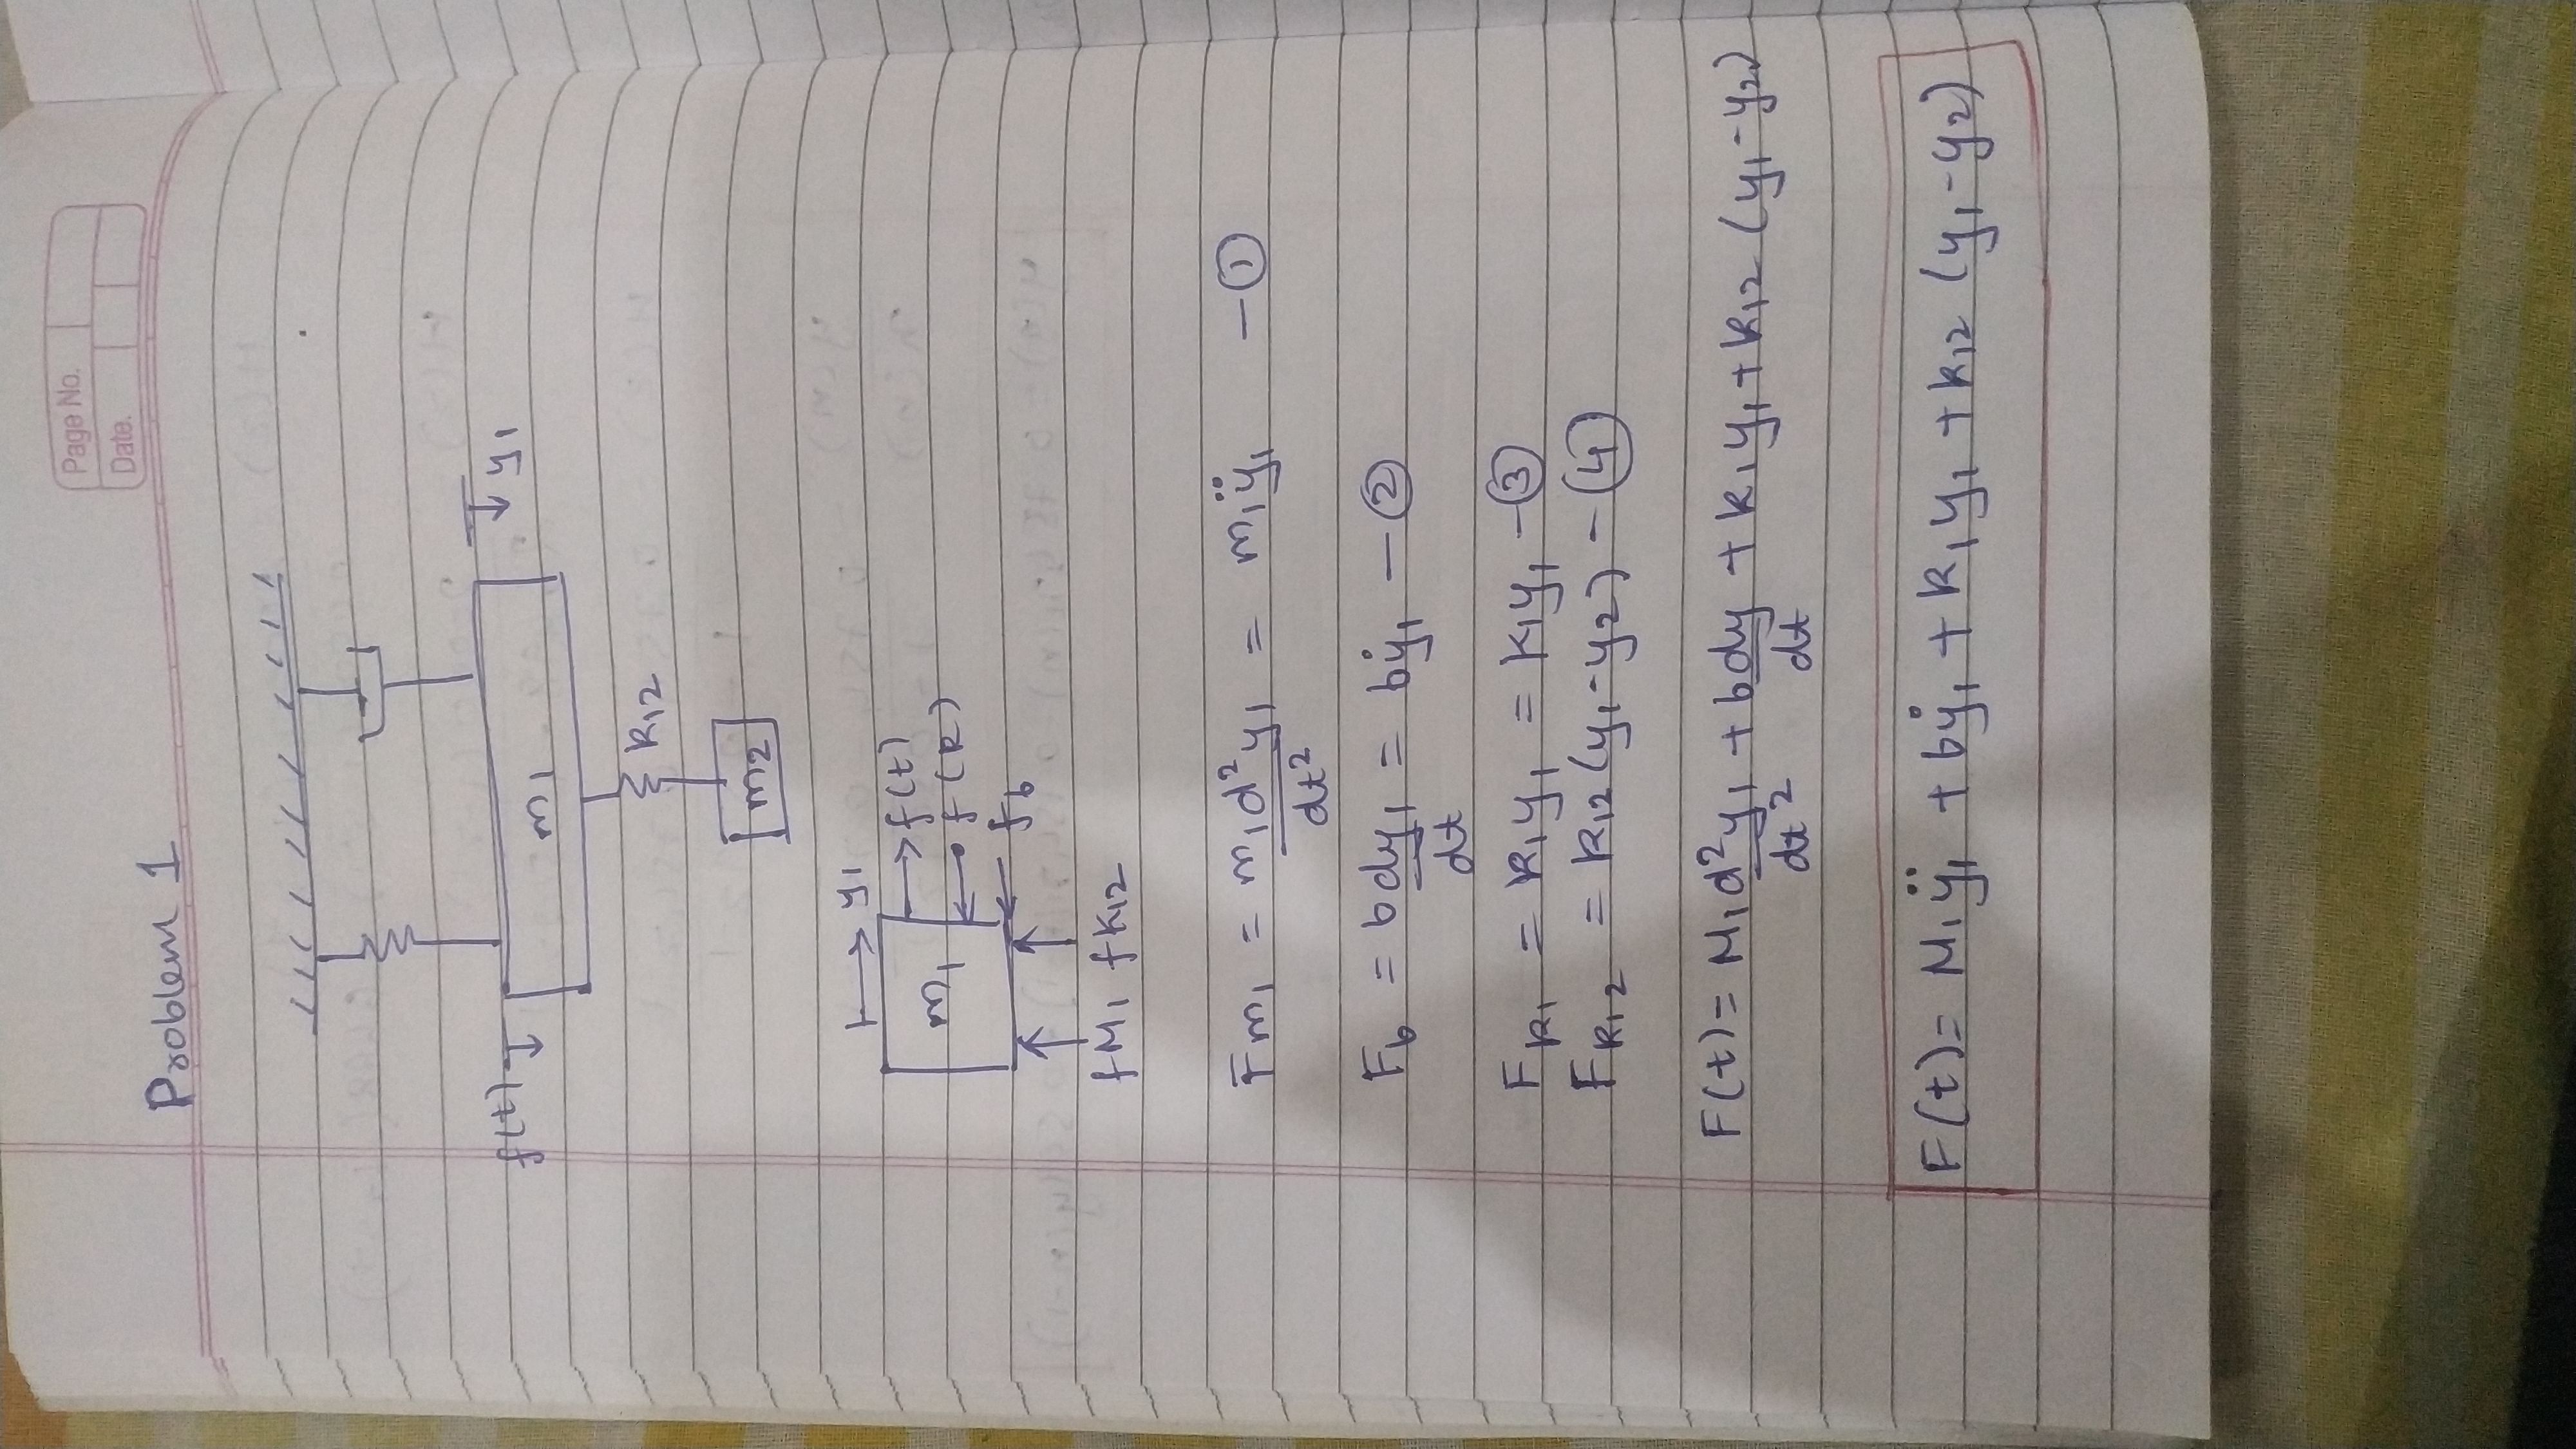 Page No.
Date.
Problem 1
f(t)
y₁
m₁
k₁₂
m₂
y₁
m₁
f(t)
f(k)
f_b
fM₁ fK₁₂
Fm₁ = m₁d²y₁/dt² = m₁ÿ₁ - ①
F_b = b dy₁/dt = bẏ₁ - ②
F_k₁ = k₁y₁ = k₁y₁ - ③
F_k₁₂ = k₁₂(y₁-y₂) - ④
F(t) = M₁d²y₁/dt² + b dy/dt + k₁y₁ + k₁₂ (y₁-y₂)
F(t) = M₁ÿ₁ + bẏ₁ + k₁y₁ + k₁₂ (y₁-y₂)